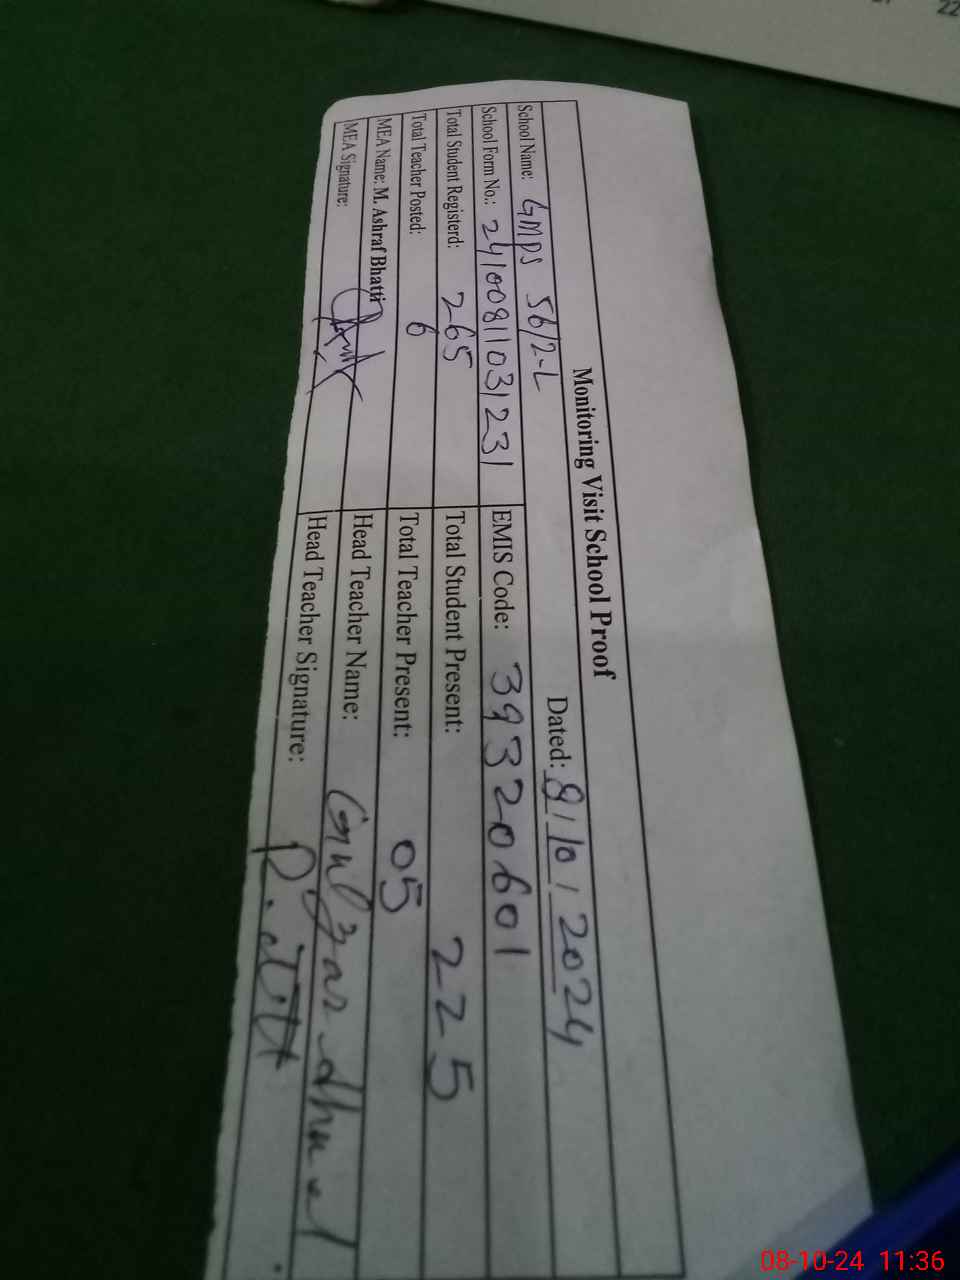 Monitoring Visit School Proof
Dated: 8/10/2024
School Name: GMPS 56/2-L
School Form No.: 24100811031231 EMIS Code: 39320601
Total Student Registerd: 265 Total Student Present: 225
Total Teacher Posted: 6 Total Teacher Present: 05
MEA Name: M. Ashraf Bhatti Head Teacher Name: Gulzar Ahmed
MEA Signature: Head Teacher Signature:
22
08-10-24 11:36